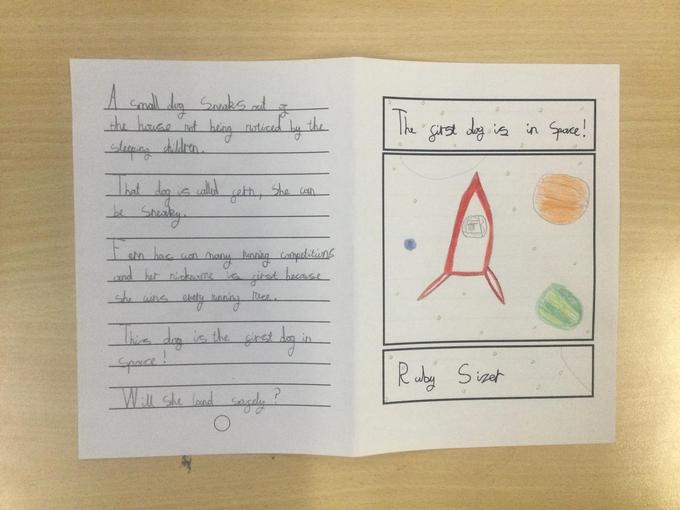 A small dog Sneaks out of
the house not being noticed by the
sleeping children.
That dog is called fern, She can
be Sneaky.
Fern has won many running competitions
and her nickname is first because
she wins every running race.
This dog is the first dog in
space!
Will She land safely?
The first dog is in Space!
Ruby Sizer